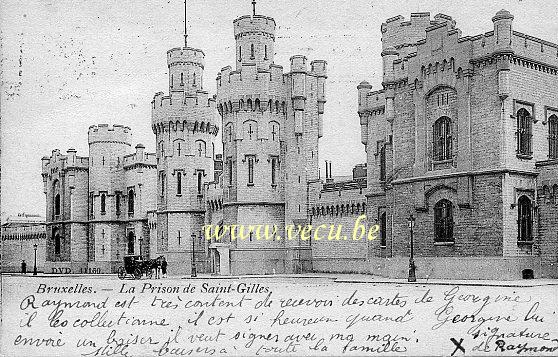 www.vecu.be
DVD 11160
Bruxelles. — La Prison de Saint-Gilles.
Raymond est très content de recevoir des cartes de Georgine
il les collectionne il est si heureux quant Georgine lui
envoie un baiser il veut signer avec ma main.
signature
X de Raymond
mille baisers à toute la famille